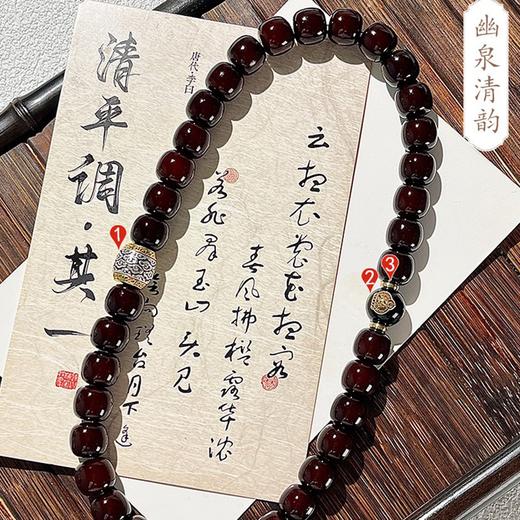 幽泉清韵
清平調·其一
唐代·李白
云想衣裳花想容
春風拂槛露华浓
若非群玉山头见
会向瑶台月下逢
1
2
3